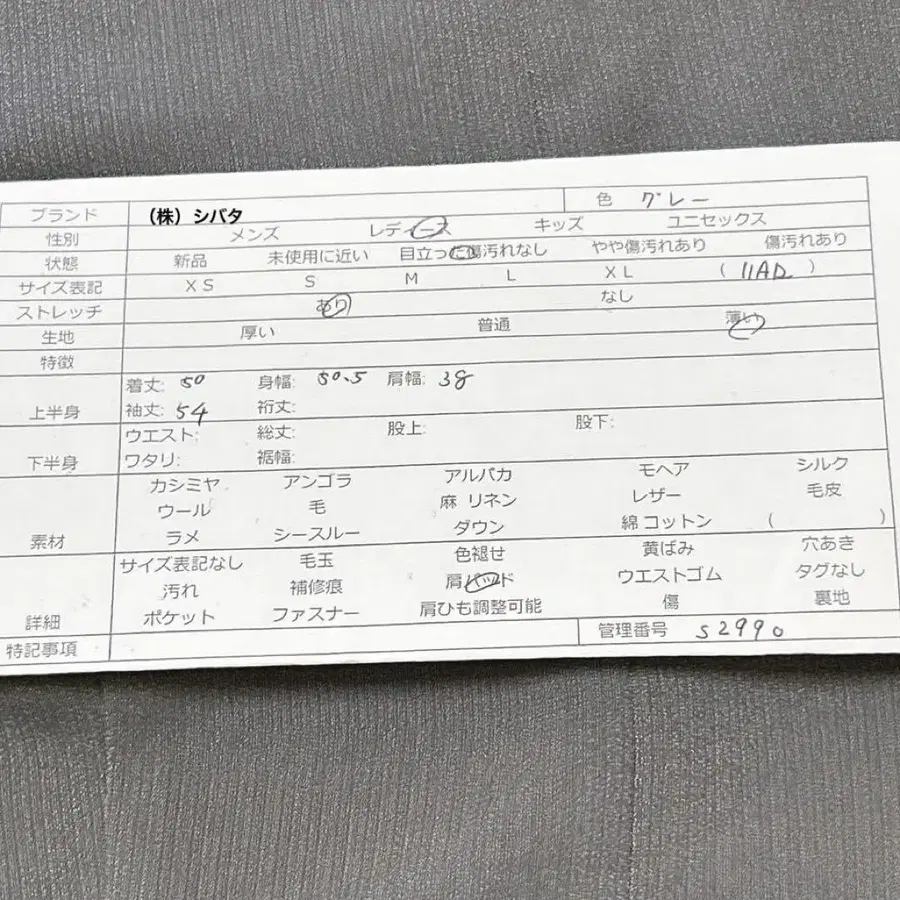 ブランド （株）シバタ 色 グレー
性別 メンズ レディース キッズ ユニセックス
状態 新品 未使用に近い 目立った傷汚れなし やや傷汚れあり 傷汚れあり
サイズ表記 XS S M L XL (11AR)
ストレッチ あり なし
生地 厚い 普通 薄い
特徴
上半身 着丈: 50 身幅: 50.5 肩幅: 38
袖丈: 54 裄丈:
下半身 ウエスト: 総丈: 股上: 股下:
ワタリ: 裾幅:
素材 カシミヤ アンゴラ アルパカ モヘア シルク
ウール 毛 麻 リネン レザー 毛皮
ラメ シースルー ダウン 綿 コットン ( )
詳細 サイズ表記なし 毛玉 色褪せ 黄ばみ 穴あき
汚れ 補修痕 肩パッド ウエストゴム タグなし
ポケット ファスナー 肩ひも調整可能 傷 裏地
特記事項 管理番号 S2990